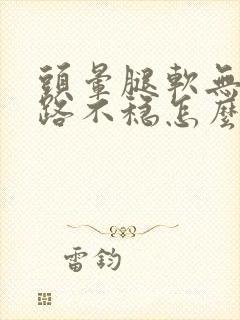 頭暈腿軟無
路不穩怎麼
雷鈞